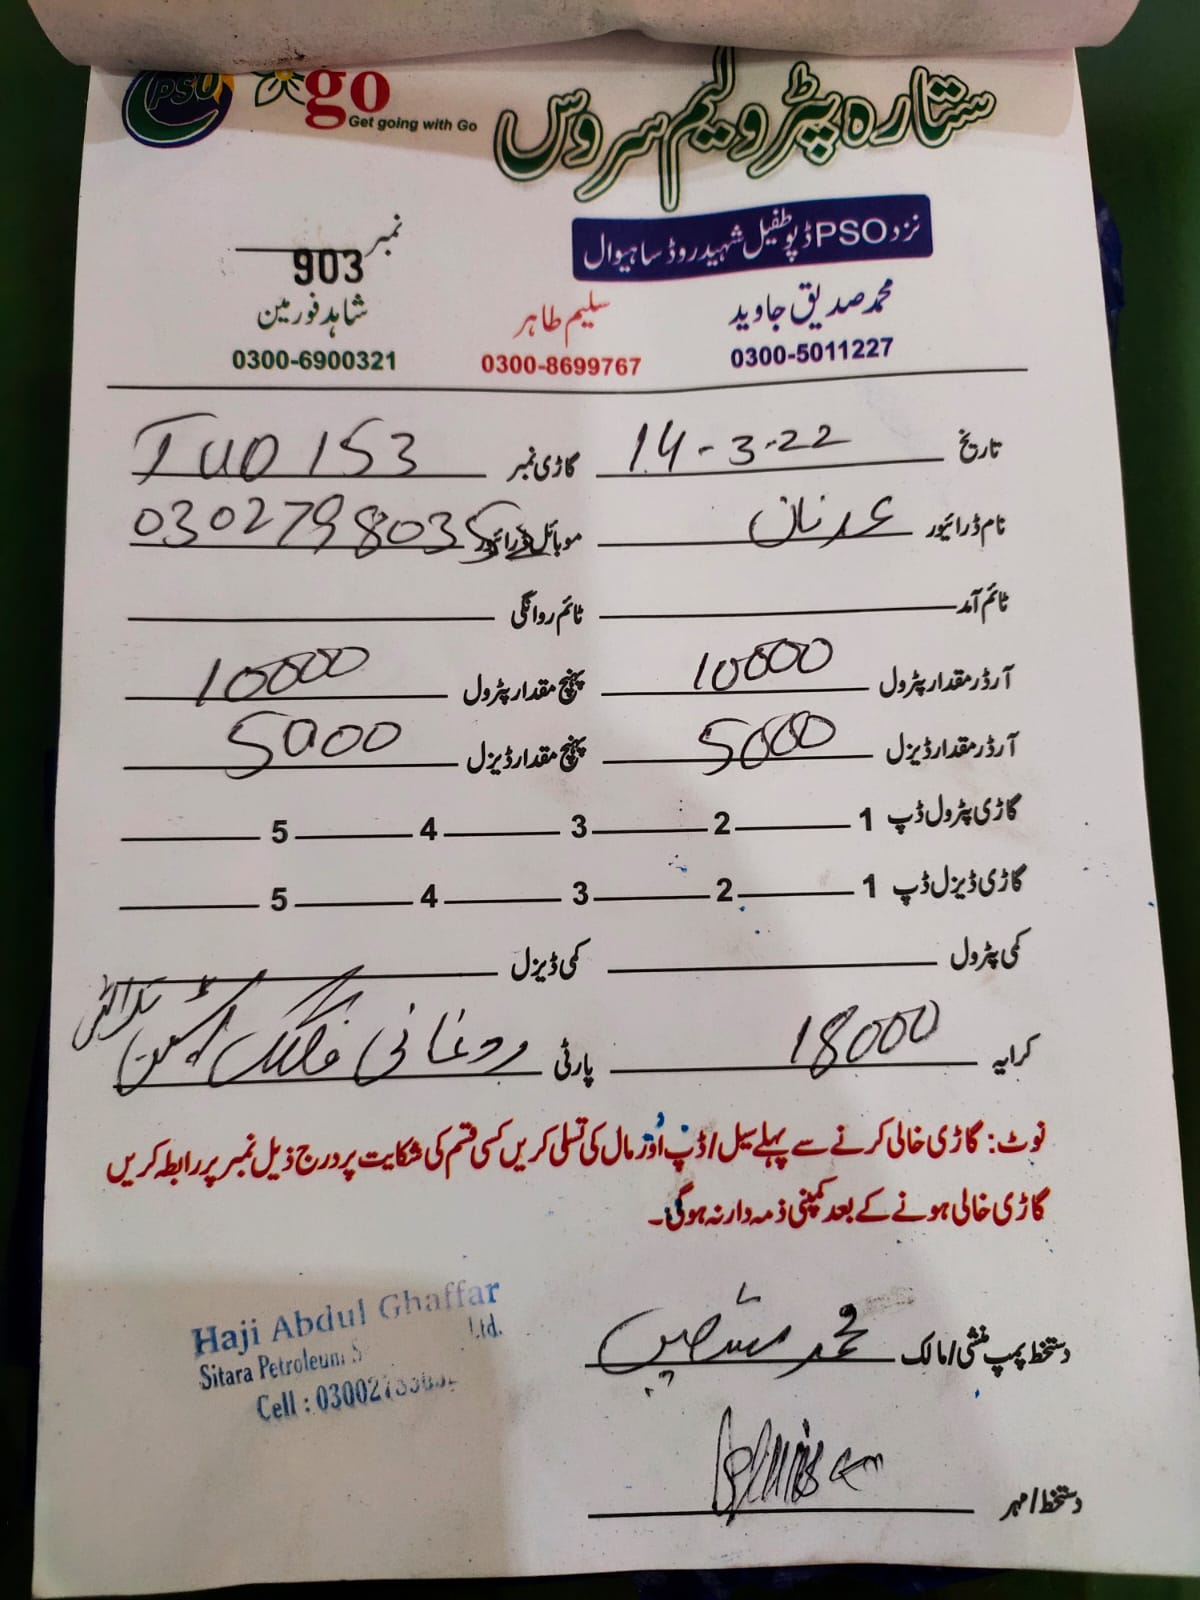 PSO go ستارہ پٹرولیم سروس
Get going with Go
نزد PSO ڈپو طفیل شہید روڈ ساہیوال
نمبر 903
محمد صدیق جاوید سلیم طاہر شاہد فورمین
0300-5011227 0300-8699767 0300-6900321
تاریخ 14-3-22 گاڑی نمبر 153
نام ڈرائیور عدنان موبائل ڈرائیور 03027980355
ٹائم آمد ٹائم روانگی
آرڈر مقدار پٹرول 10000 پہنچ مقدار پٹرول 10000
آرڈر مقدار ڈیزل 5000 پہنچ مقدار ڈیزل 5000
گاڑی پٹرول ڈپ 1 2 3 4 5
گاڑی ڈیزل ڈپ 1 2 3 4 5
کمی پٹرول کمی ڈیزل
کرایہ 18000 پارٹی
نوٹ: گاڑی خالی کرنے سے پہلے سیل/ڈپ اور مال کی تسلی کریں کسی قسم کی شکایت پر درج ذیل نمبر پر رابطہ کریں
گاڑی خالی ہونے کے بعد کمپنی ذمہ دار نہ ہوگی۔
Haji Abdul Ghaffar
Sitara Petroleum Ltd.
Cell :
دستخط پمپ منشی/مالک محمد
دستخط/مہر